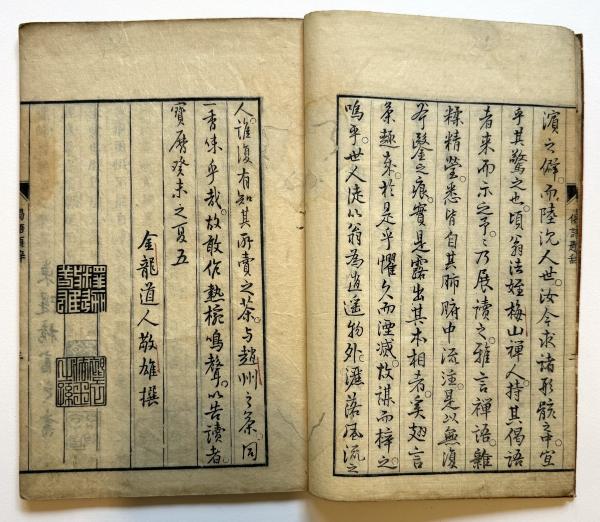 濱之僻。而陸沈人世。汝今求諸形骸之中。宜
乎其驚之也。頃翁法姪梅山禪人。持其偈語
者来而示之予。々乃展讀之。雅言禪語。雜
糅精瑩。悉皆自其肺腑中流注。是以無復
斧鑿之痕。實是露出其本相者。奚翅言
茶趣来。於是乎懼久而湮滅。故謀而梓之。
嗚乎世人徒以翁為逍遥物外。灑落風流之
人。誰復有知其所賣之茶。与趙州之茶。同
一香味乎哉。故敢作熱椀鳴聲。以告讀者。
寶曆癸未之夏五
金龍道人敬雄撰